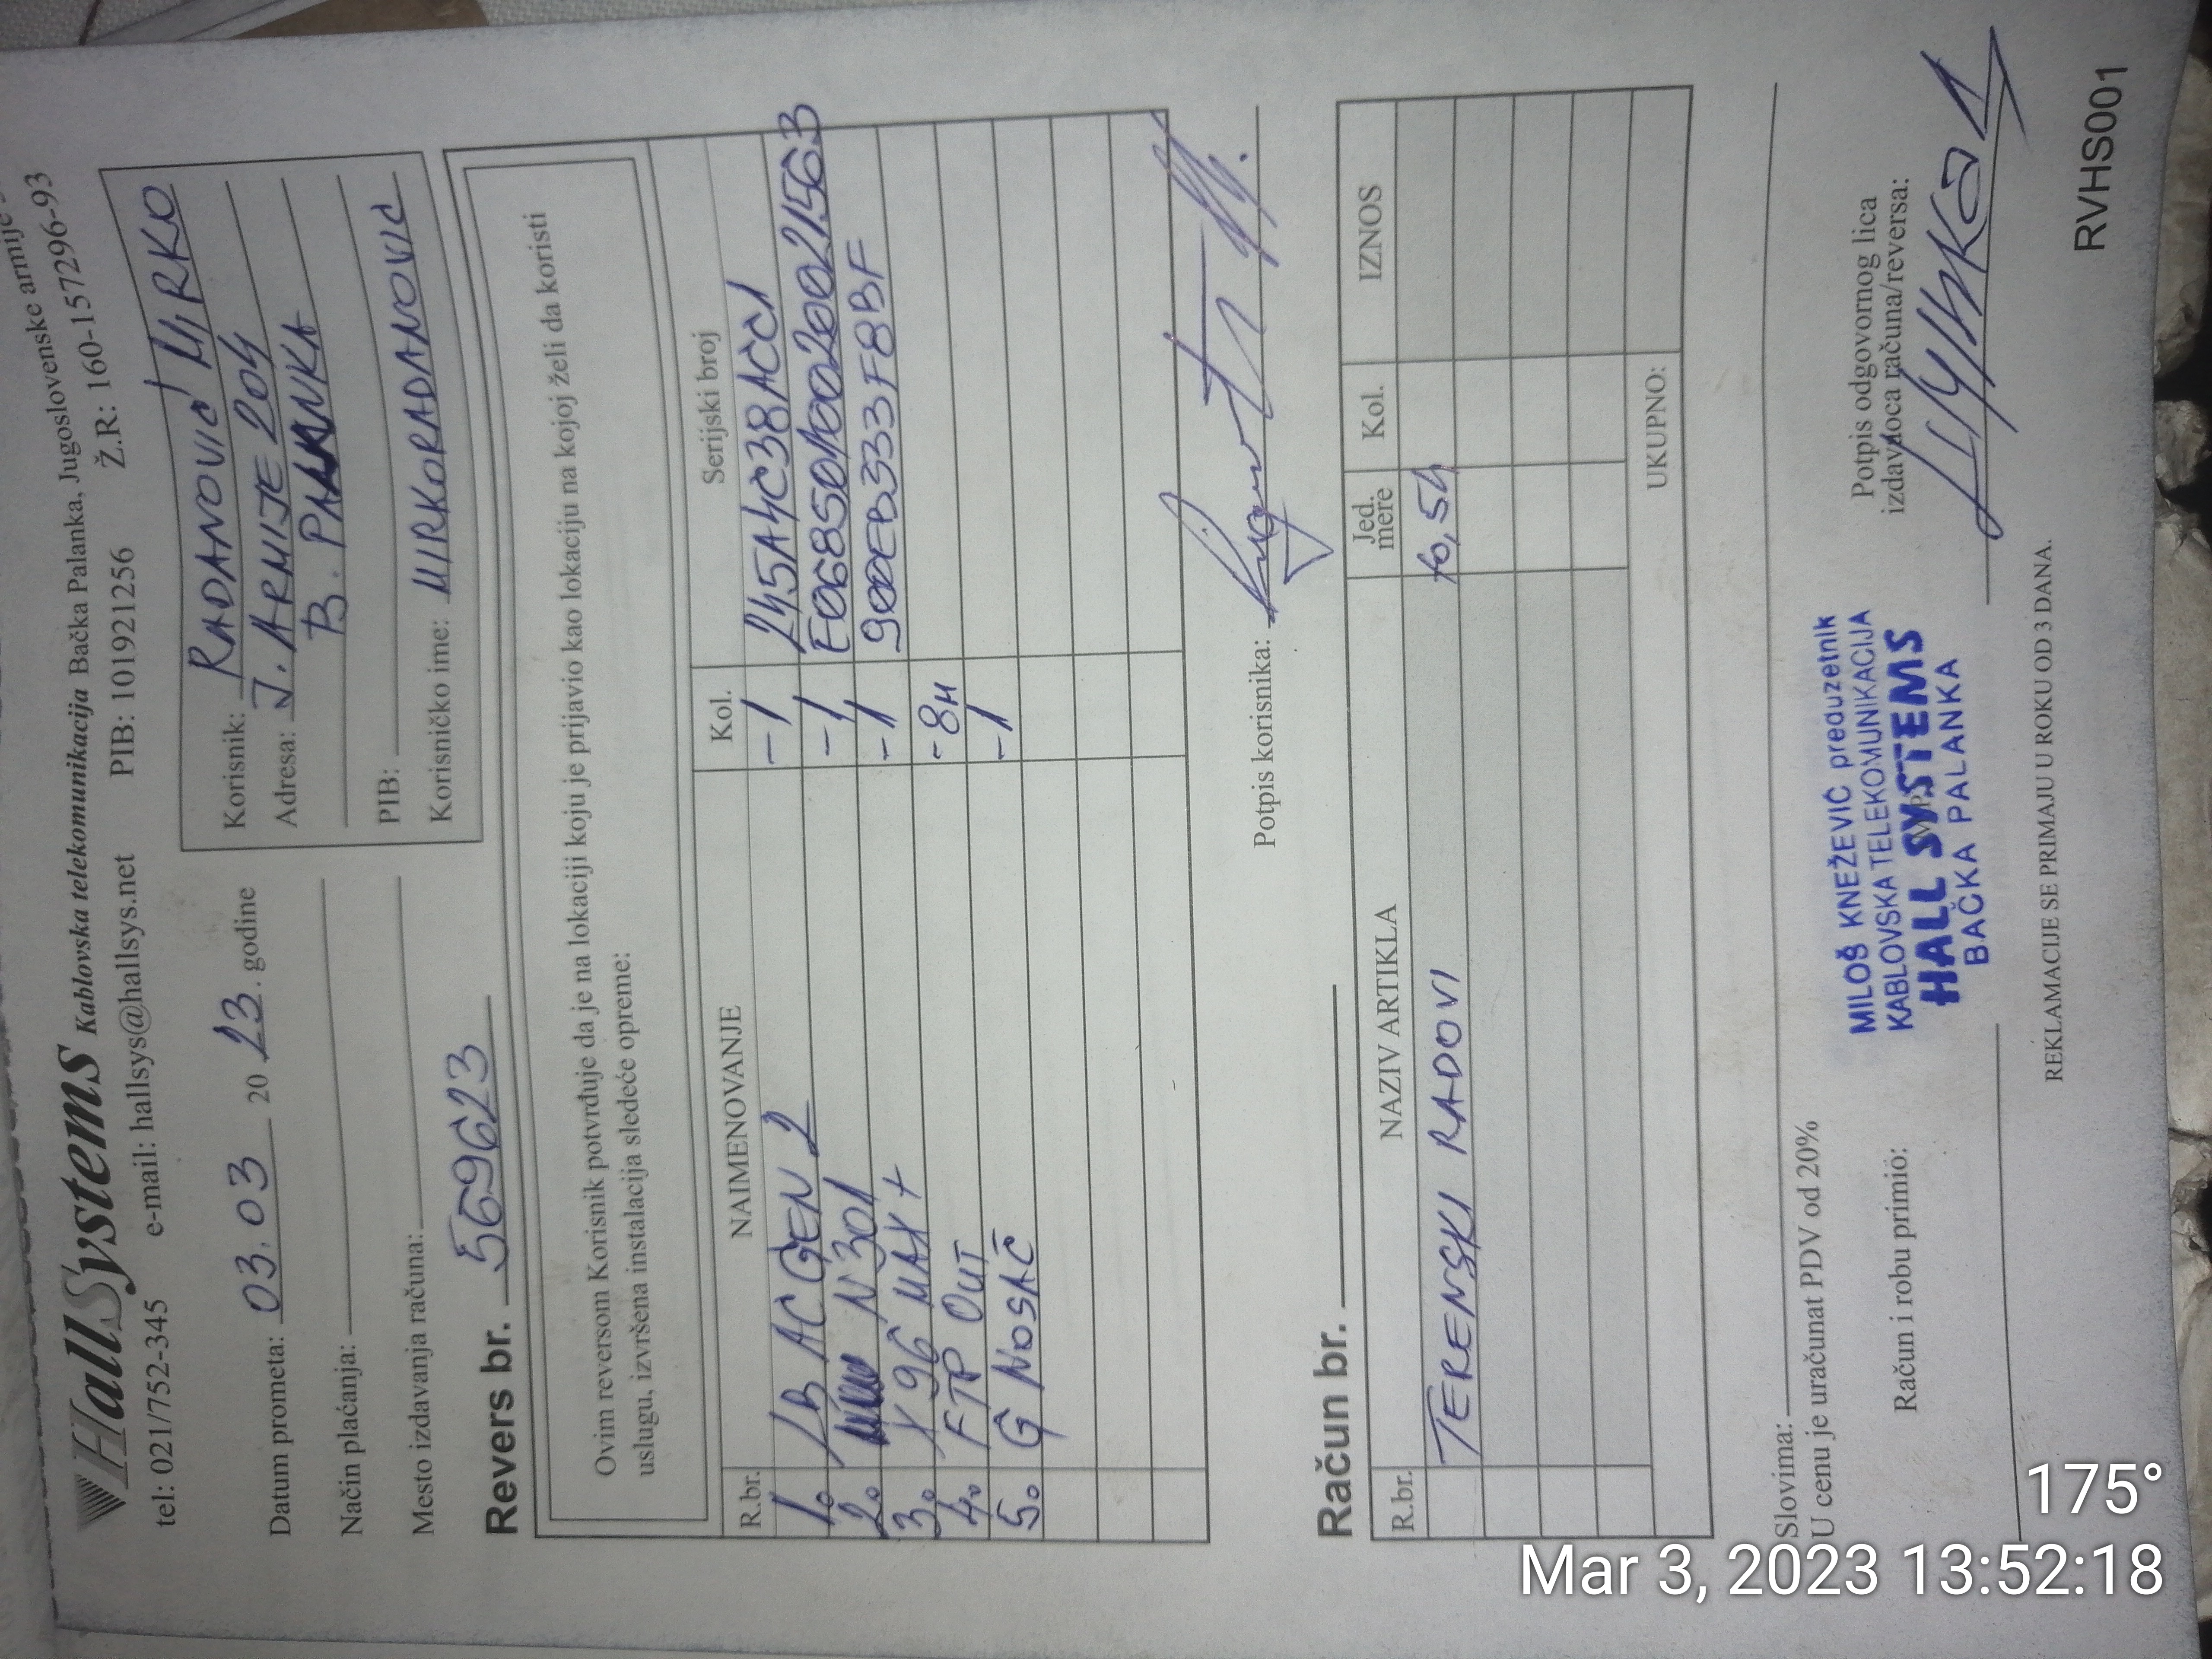 HallSystems Kablovska telekomunikacija Bačka Palanka, Jugoslovenske armije
tel: 021/752-345 e-mail: hallsys@hallsys.net PIB: 101921256 Ž.R: 160-157296-93
Datum prometa: 03.03 20 23. godine
Način plaćanja:
Mesto izdavanja računa:
Korisnik: RADANOVIĆ MIRKO
Adresa: J. ARMIJE 204
B. PALANKA
PIB:
Korisničko ime: MIRKORADANOVIC
Revers br. 569623
Ovim reversom Korisnik potvrđuje da je na lokaciji koju je prijavio kao lokaciju na kojoj želi da koristi
uslugu, izvršena instalacija sledeće opreme:
R.br. NAIMENOVANJE Kol. Serijski broj
1. LB AC GEN 2 -1 245A4C38ACC1
2. N301 -1 E0685010020021563
3. X96 MAX+ -1 900EB333F8BF
4. FTP OUT -8M
5. G NOSAČ -1
Potpis korisnika:
Račun br.
R.br. NAZIV ARTIKLA Jed. mere Kol. IZNOS
TERENSKI RADOVI
UKUPNO:
Slovima:
U cenu je uračunat PDV od 20%
Račun i robu primio:
MILOŠ KNEŽEVIĆ preduzetnik
KABLOVSKA TELEKOMUNIKACIJA
HALL SYSTEMS
BAČKA PALANKA
Potpis odgovornog lica
izdavaoca računa/reversa:
REKLAMACIJE SE PRIMAJU U ROKU OD 3 DANA.
RVHS001
175°
Mar 3, 2023 13:52:18